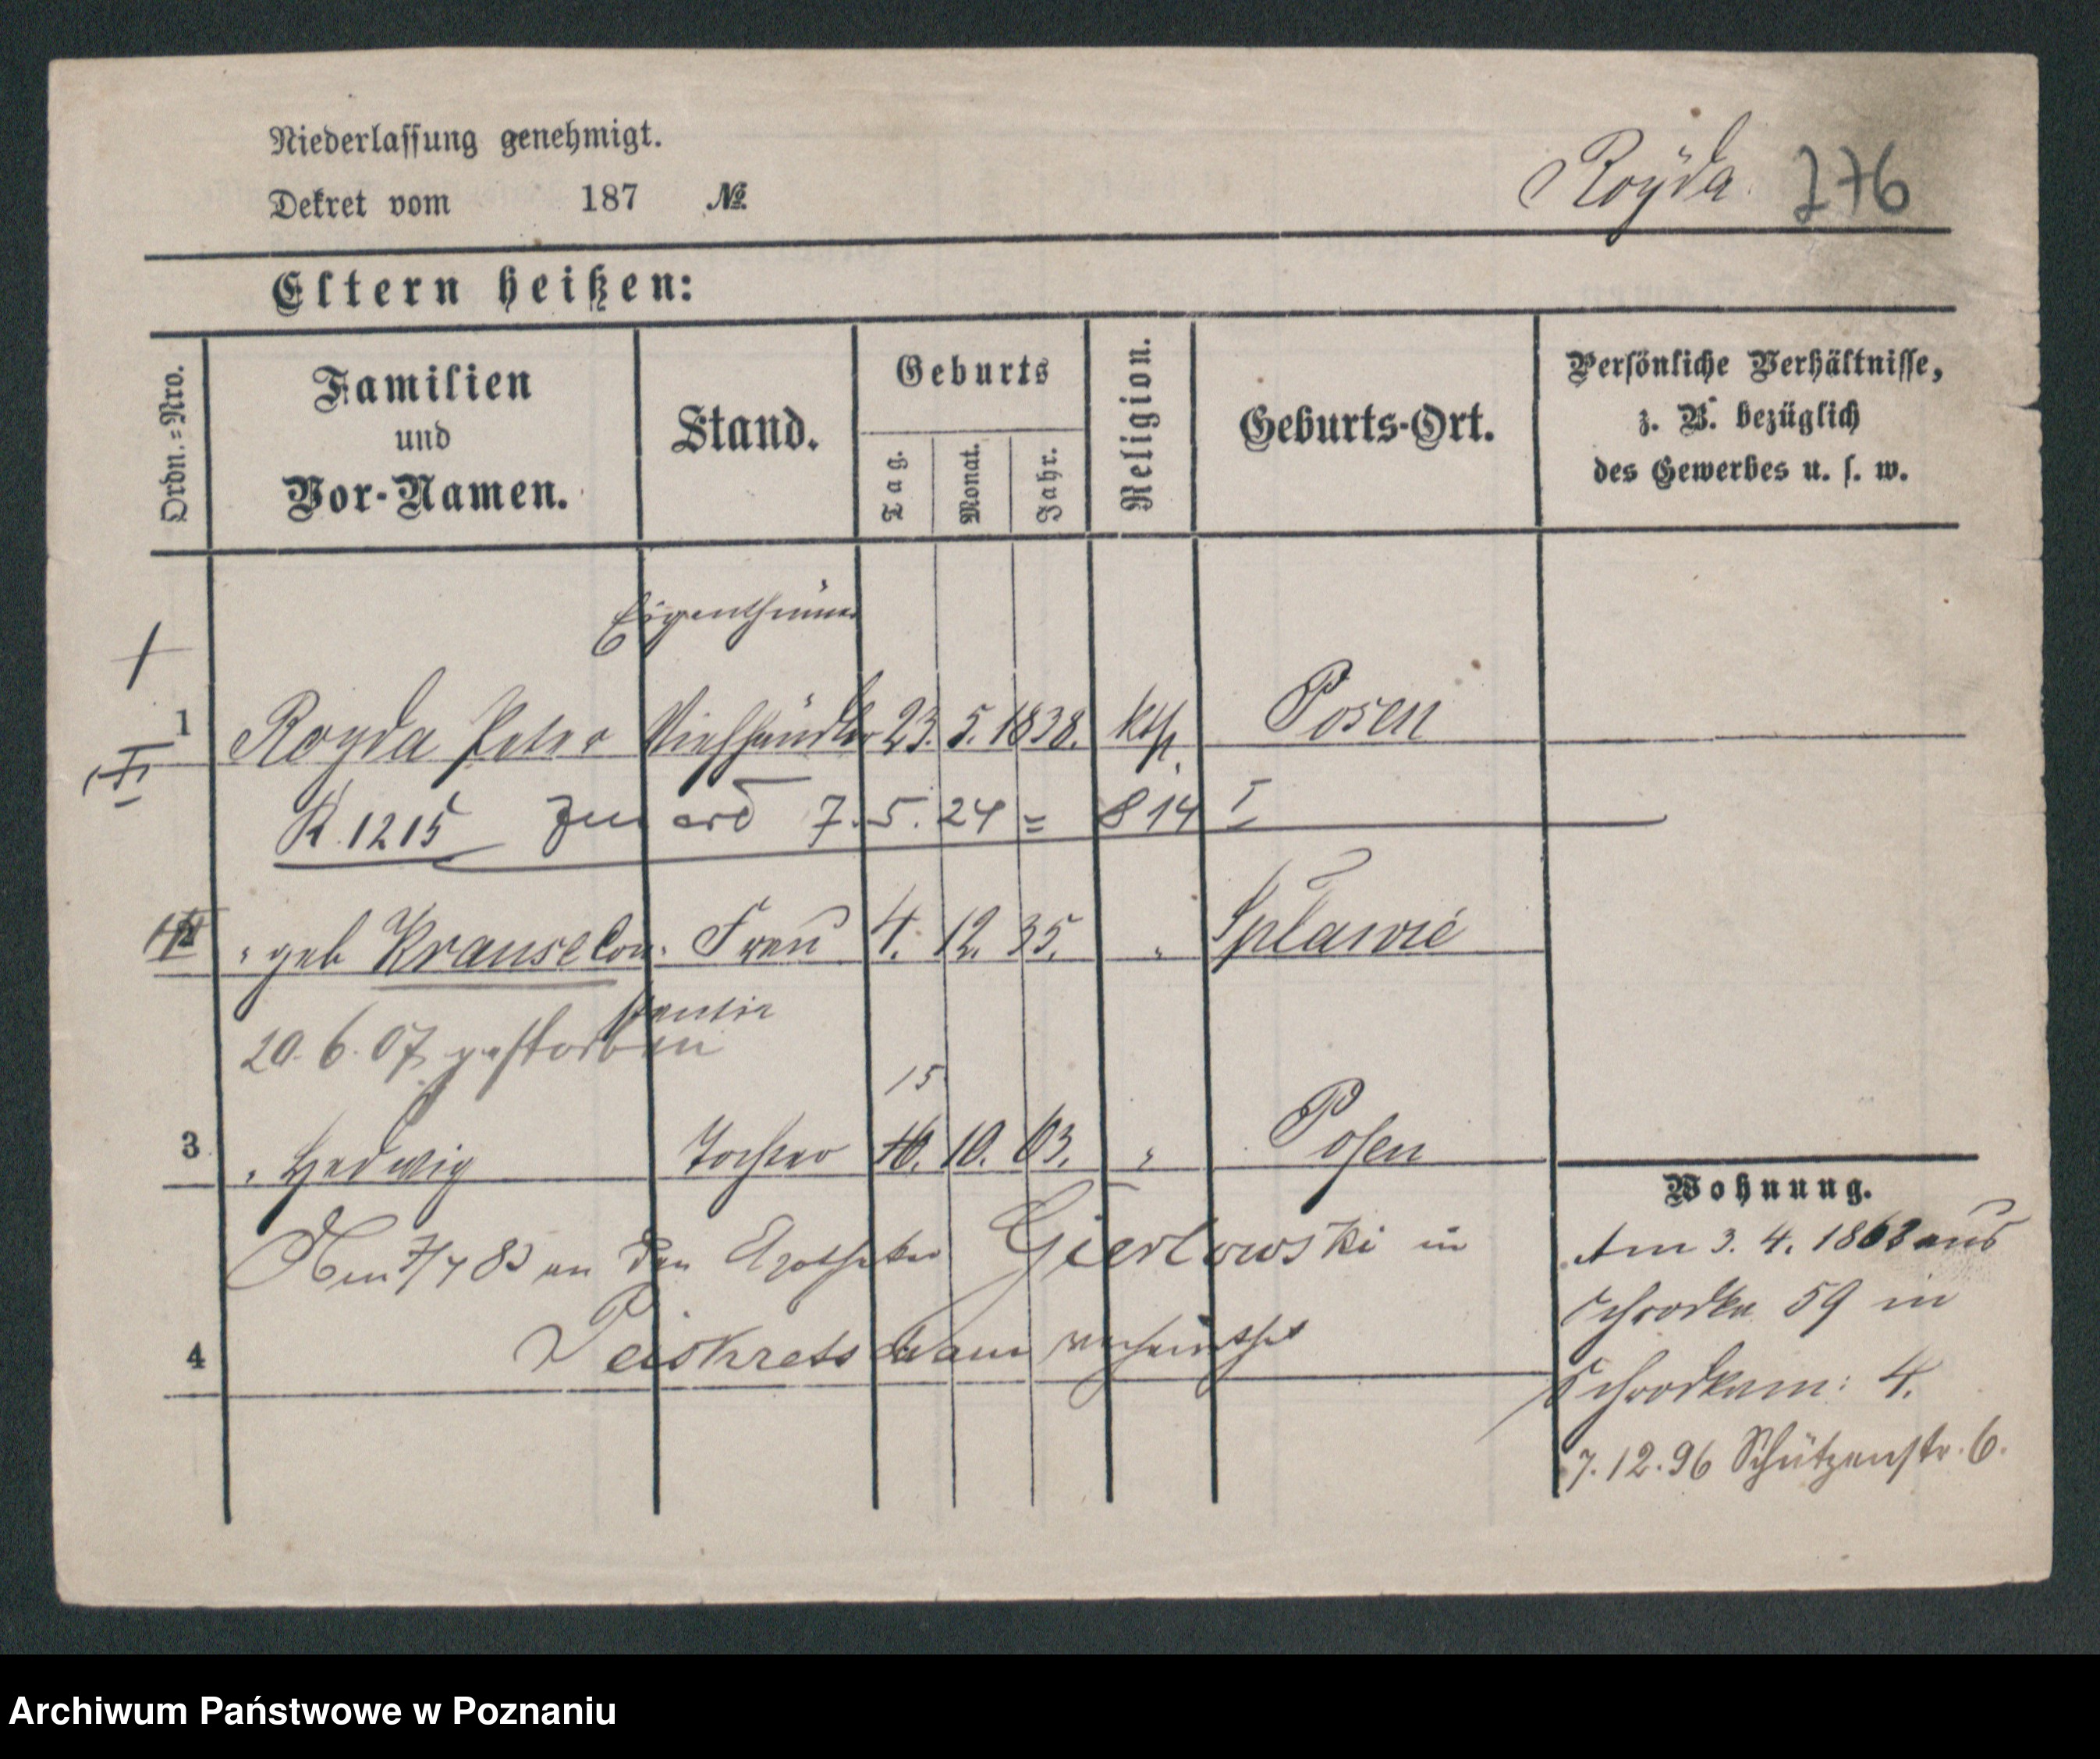 Niederlassung genehmigt.
Dekret vom 187 №
Royda. 276
Eltern heißen:
Ordn.=Nro.
Familien
und
Vor-Namen.
Stand.
Geburts
Tag.
Monat.
Jahr.
Religion.
Geburts-Ort.
Persönliche Verhältnisse,
z. B. bezüglich
des Gewerbes u. s. w.
Eigenthümer
1 Royda Peter Viehhändler 23. 5. 1838. kth. Posen
R. 1215 7.5.24 = 814 I
" geb Krause Con= Frau 4. 12. 35. " Spławie
stantia
20.6.07 gestorben
15
3 " Hedwig Tochter 10. 63. " Posen
an den Apotheker Gierlowski in
Peiskretscham verheirathet
4
Wohnung.
Am 3. 4. 1868 aus
Schrodka 59 in
Schrodkam: 4.
7.12.96 Schützenstr. 6.
Archiwum Państwowe w Poznaniu